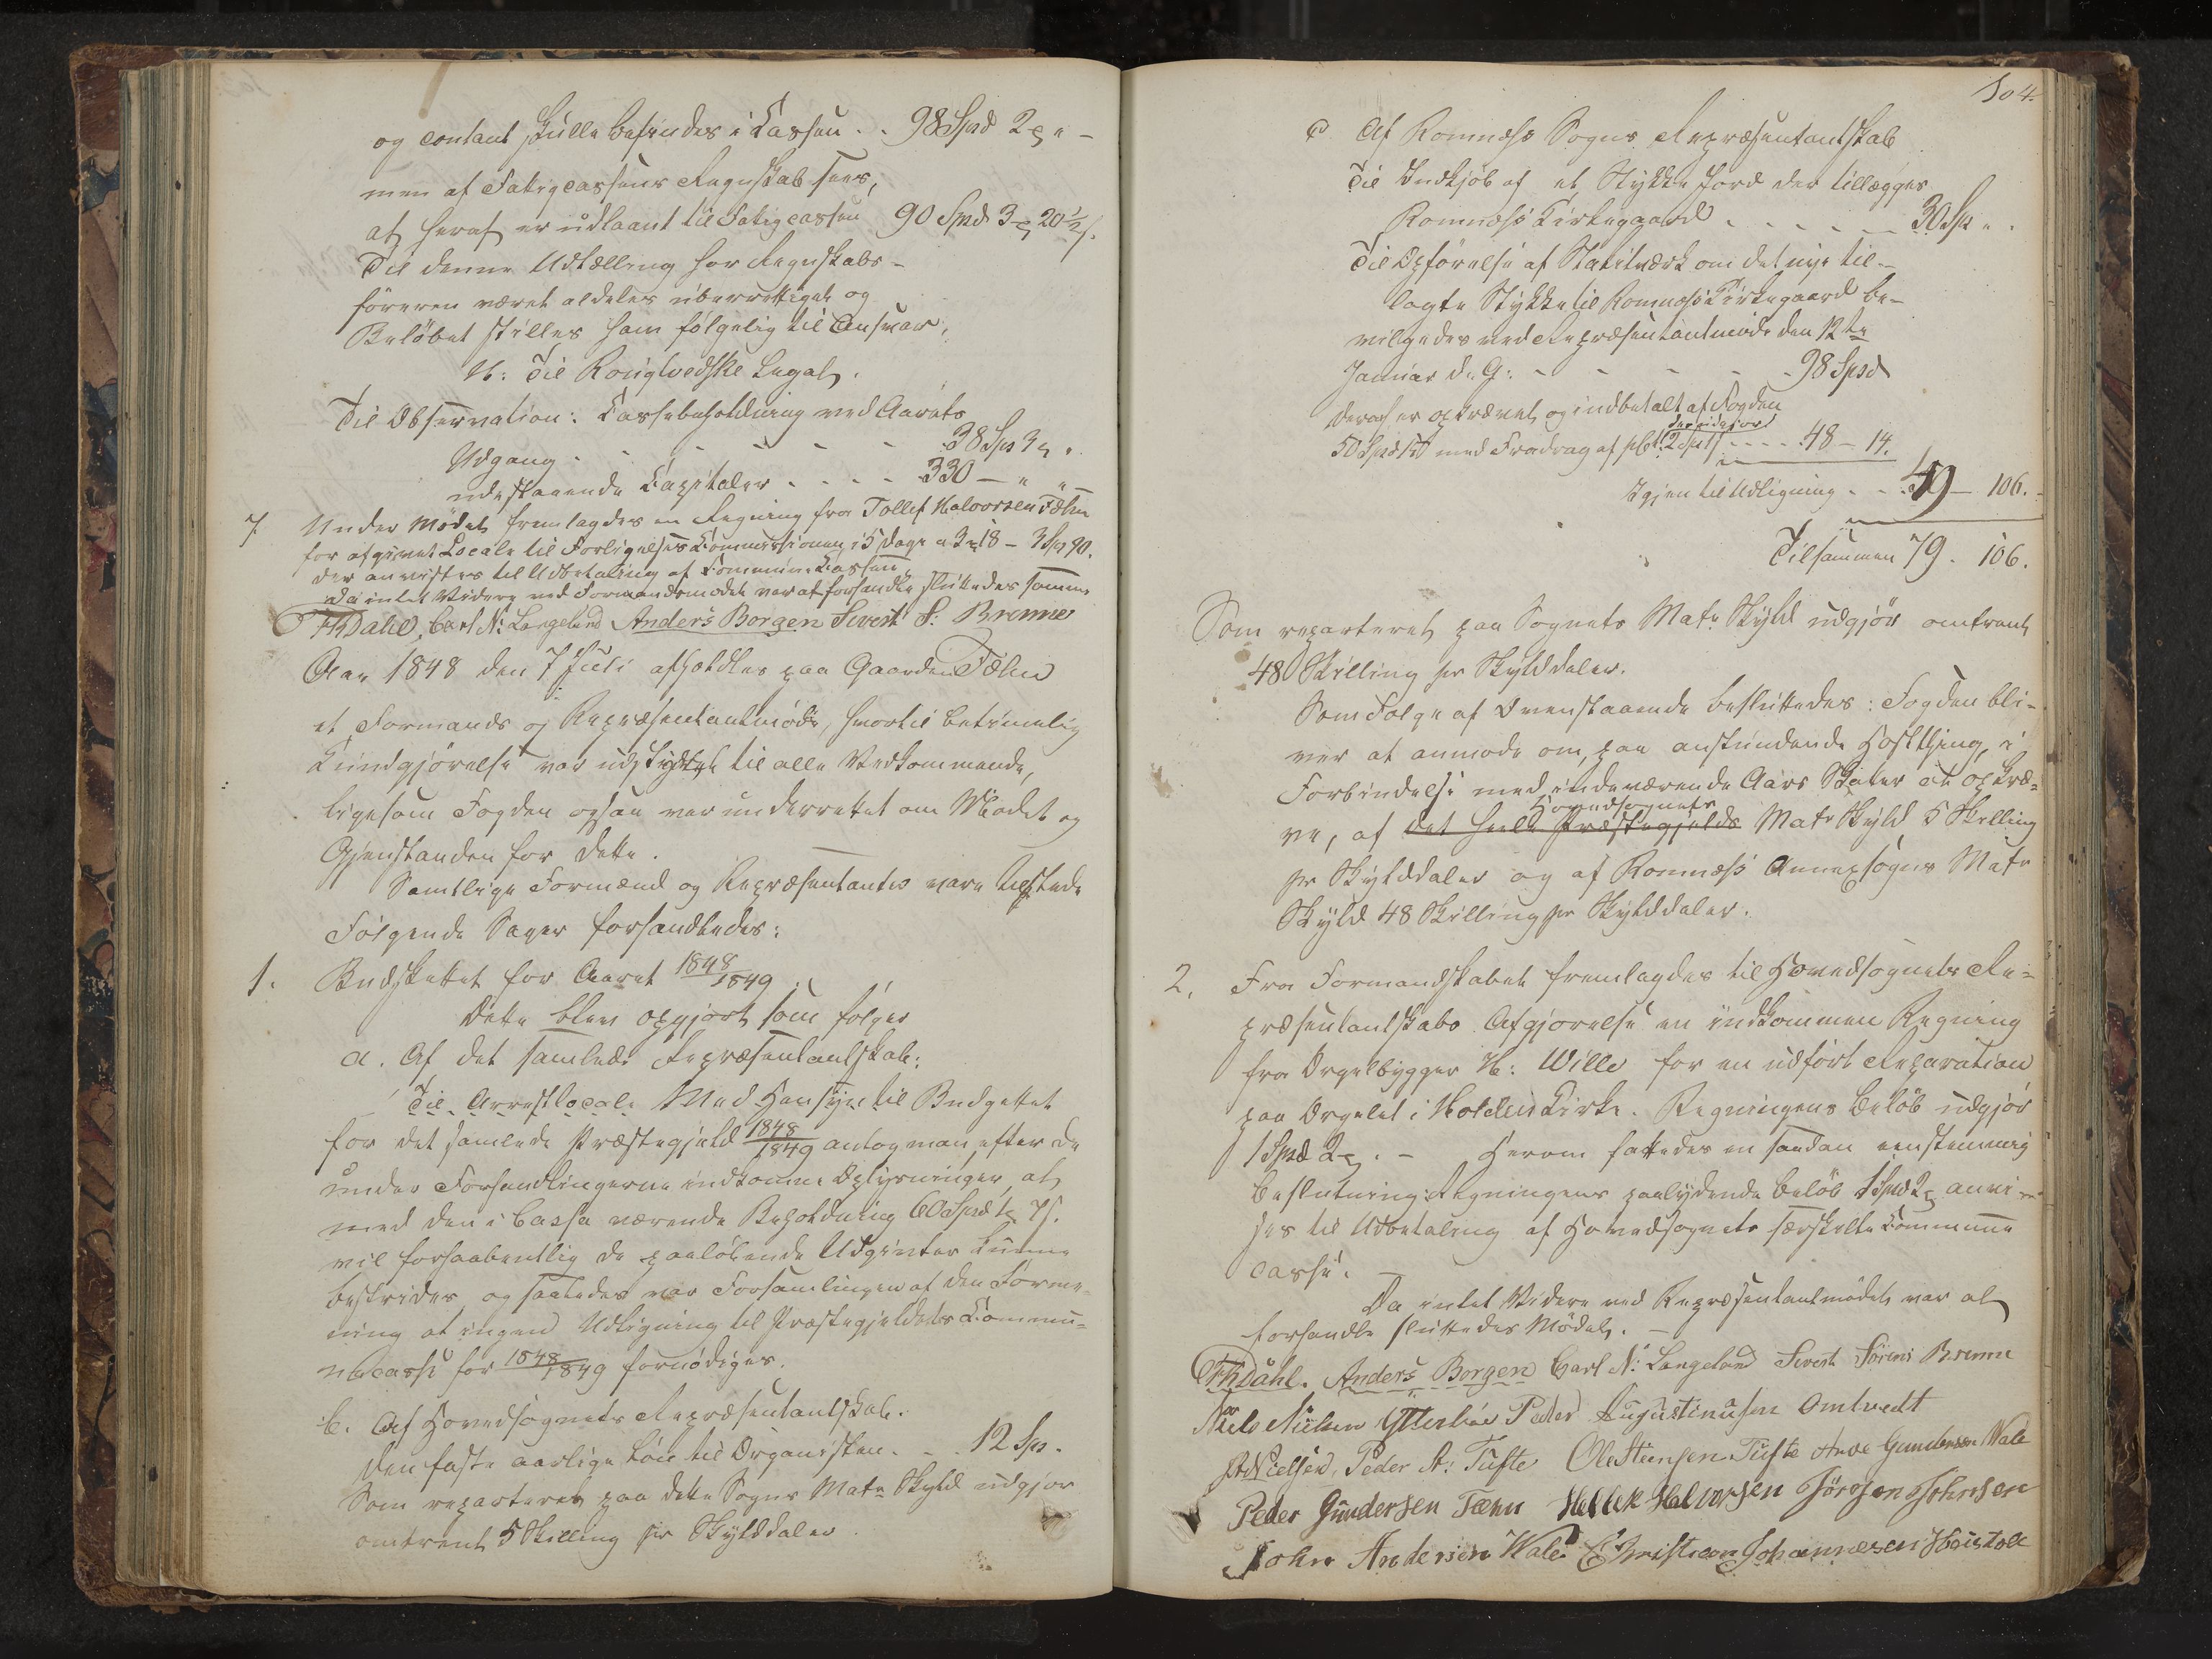 og contant skulle befindes i Cassen . . 98 Spd 2 " -
men af Fattigcassens Regnskab sees,
at heraf er udlaant til Fatigcassen 90 Spd 3 20½ s.
Til denne Udtælling har Regnskabs-
føreren været aldeles uberettiget og
Beløbet stilles ham følgelig til Ansvar.
Til Observation: Cassebeholdning ved Aarets
Udgang - - - - - 38 Sps 3 "
udestaaende Capitaler . . . . 330 — " "
7 Under Mødet fremlagdes en Regning fra Tollef Halvorsen Fæhn
for afgivet Locale til Forligelses Commissionen i 5 Dage a 3 18 - 3 Sp 90.
der anvistes til Udbetaling af Commune Cassen,
Da intet Videre ved Formandsmødet var at forhandle sluttedes samme
FhDahl, Carl N: Langeland Anders Borgen Sivert S: Brenne
Aar 1848 den 7 Juli afholdtes paa Gaarden Fæhn
et Formands og Repræsentantmøde, hvortil betimelig
Kundgjørelse var udstædt til alle Vedkommende,
ligesom Fogden ogsaa var underrettet om Mødet og
Gjenstanden for dette.
Samtlige Formænd og Repræsentanter vare tilstede
Følgende Sager forhandledes:
1. Budgettet for Aaret 1848/1849.
Dette blev opgjort som følger
a. Af det samlede Repræsentantskab:
Til Arrestlocale Med Hensyn til Budgettet
for det samlede Præstegjeld 1848/1849 antog man, efter de
under Forhandlingerne indkomne Oplysninger, at
med den i Cassa værende Beholdning 60 Spd 1 7 s.
vil forhaabentlig de paaløbende Udgivter kunne
bestrides, og saaledes var Forsamlingen af den Forme-
ning at ingen Udligning til Præstegjeldets Commu-
necasse for 1848/1849 fornødiges.
b. Af Hovedsognets Repræsentantskab.
Den faste aarlige Løn til Organisten . . . 12 Sps.
Som reparteret paa dette Sogns Matr Skyld udgjør
omtrent 5 Skilling pr Skylddaler.
104.
c Af Romnæs Sogns Repræsentantskab
Til Indkjøb af et Stykke Jord der tillægges
Romnæs Kirkegaard . . . . . . 30 Sp " .
Til Opførelse af Stakitværk om det nye til-
lagte Stykke til Romnæs Kirkegaard be-
vilgedes ved Repræsentantmøde den 12te
Januar d. A: - - - - - 98 Spd
deraf er opkrævet og indbetalt af Fogden
50 Spd med Fradrag af 2 Sp - - - - 48 - 14.
Igjen til Udligning . . . 49 - 106.
Tilsammen 79 . 106.
Som reparteret paa Sognets Matr Skyld udgjør omtrent
48 Skilling pr Skylddaler.
Som Følge af Ovenstaaende besluttedes: Fogden bli-
ver at anmode om, paa anstundende Høstthing, i
Forbindelse med indeværende Aars Skatter at opkræ-
Hovedsognets
ve, af det heele Præstegjelds Matr Skyld 5 Skilling
pr Skylddaler og af Romnæs Annexsogns Matr
Skyld 48 Skilling pr Skylddaler.
2. Fra Formandskabet fremlagdes til Hovedsognets Re-
præsentantskabs Afgjørelse en indkommen Regning
fra Orgelbygger H: Wille for en udført Reparation
paa Orgelet i Holden Kirke. Regningens Beløb udgjør
1 Spd 2 . - Herom fattedes en saadan eenstemmig
Beslutning: Regningens paalydende Beløb 1 Spd 2 anvi-
ses til Udbetaling af Hovedsognets særskilte Commune
Casse. -
Da intet Videre ved Repræsentantmødet var at
forhandle sluttedes Mødet. -
FhDahl. Anders Borgen Carl N: Langeland Sivert Sørens Brenne
Niels Nielsen Ytterbøe Peder Augustinusen Omtvedt
Nielsen, Peder A: Tufte Ole Steensen Tufte Aase Gundersen Wale
Peder Gundersen Fæhn Hellek Halvorsen Jörgen Johnsen
John Andersen Wale Christian Johannesen